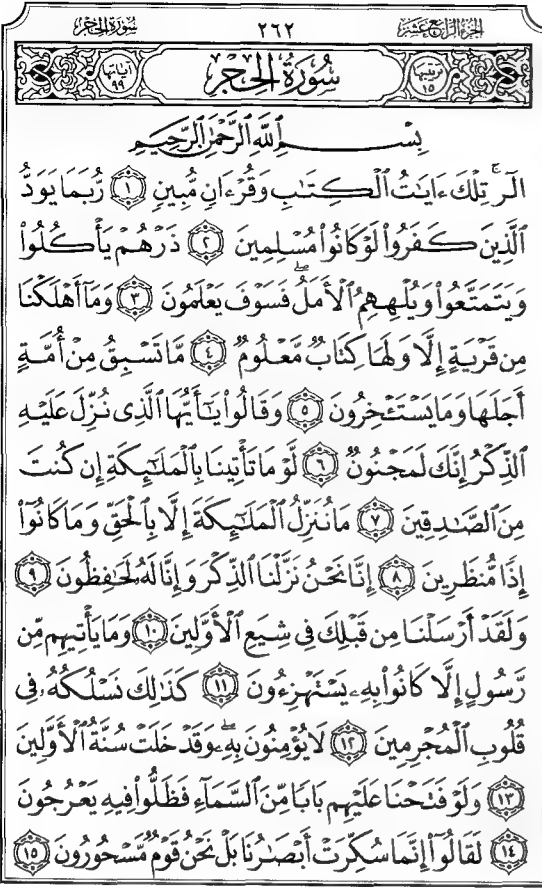 سُورَةُ الحِجْرِ ٢٦٢ الجُزْءُ الرَّابِعَ عَشَرَ
آيَاتُهَا ٩٩ سُورَةُ الحِجْرِ تَرْتِيبُهَا ١٥
بِسْمِ اللَّهِ الرَّحْمَٰنِ الرَّحِيمِ
الٓرۚ تِلْكَ ءَايَٰتُ ٱلْكِتَٰبِ وَقُرْءَانٍ مُّبِينٍ ١ رُّبَمَا يَوَدُّ
ٱلَّذِينَ كَفَرُوا۟ لَوْ كَانُوا۟ مُسْلِمِينَ ٢ ذَرْهُمْ يَأْكُلُوا۟
وَيَتَمَتَّعُوا۟ وَيُلْهِهِمُ ٱلْأَمَلُۖ فَسَوْفَ يَعْلَمُونَ ٣ وَمَآ أَهْلَكْنَا
مِن قَرْيَةٍ إِلَّا وَلَهَا كِتَابٌ مَّعْلُومٌ ٤ مَّا تَسْبِقُ مِنْ أُمَّةٍ
أَجَلَهَا وَمَا يَسْتَـْٔخِرُونَ ٥ وَقَالُوا۟ يَٰٓأَيُّهَا ٱلَّذِى نُزِّلَ عَلَيْهِ
ٱلذِّكْرُ إِنَّكَ لَمَجْنُونٌ ٦ لَّوْ مَا تَأْتِينَا بِٱلْمَلَٰٓئِكَةِ إِن كُنتَ
مِنَ ٱلصَّٰدِقِينَ ٧ مَا نُنَزِّلُ ٱلْمَلَٰٓئِكَةَ إِلَّا بِٱلْحَقِّ وَمَا كَانُوٓا۟
إِذًا مُّنظَرِينَ ٨ إِنَّا نَحْنُ نَزَّلْنَا ٱلذِّكْرَ وَإِنَّا لَهُۥ لَحَٰفِظُونَ ٩
وَلَقَدْ أَرْسَلْنَا مِن قَبْلِكَ فِى شِيَعِ ٱلْأَوَّلِينَ ١٠ وَمَا يَأْتِيهِم مِّن
رَّسُولٍ إِلَّا كَانُوا۟ بِهِۦ يَسْتَهْزِءُونَ ١١ كَذَٰلِكَ نَسْلُكُهُۥ فِى
قُلُوبِ ٱلْمُجْرِمِينَ ١٢ لَا يُؤْمِنُونَ بِهِۦۖ وَقَدْ خَلَتْ سُنَّةُ ٱلْأَوَّلِينَ
١٣ وَلَوْ فَتَحْنَا عَلَيْهِم بَابًا مِّنَ ٱلسَّمَآءِ فَظَلُّوا۟ فِيهِ يَعْرُجُونَ
١٤ لَقَالُوٓا۟ إِنَّمَا سُكِّرَتْ أَبْصَٰرُنَا بَلْ نَحْنُ قَوْمٌ مَّسْحُورُونَ ١٥